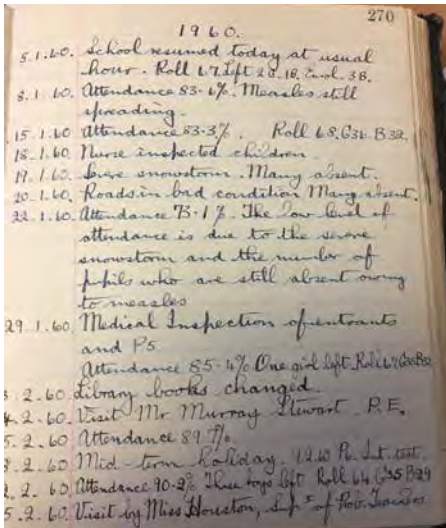 270
1960.
5.1.60. School resumed today at usual
hour. Roll 67. Left 2B. 1G. Enrol. 3B.
8.1.60. Attendance 83.6%. Measles still
spreading.
15.1.60 Attendance 83.3%. Roll 68. G36. B32.
18.1.60. Nurse inspected children.
19.1.60. Severe snowstorm. Many absent.
20.1.60. Roads in bad condition Many absent.
22.1.60. Attendance 1%. The low level of
attendance is due to the severe
snowstorm and the number of
pupils who are still absent owing
to measles
29.1.60. Medical Inspection of entrants
and P5
Attendance 85.4% One girl left. Roll 67 G35 B32
.2.60. Library books changed.
.2.60. Visit Mr Murray Stewart. P.E.
5.2.60 Attendance 89.7%.
8.2.60 Mid-term holiday.
.2.60 Attendance 90.2% Three boys left Roll 64 G35 B29
5.2.60. Visit by Miss Houston, Supt of